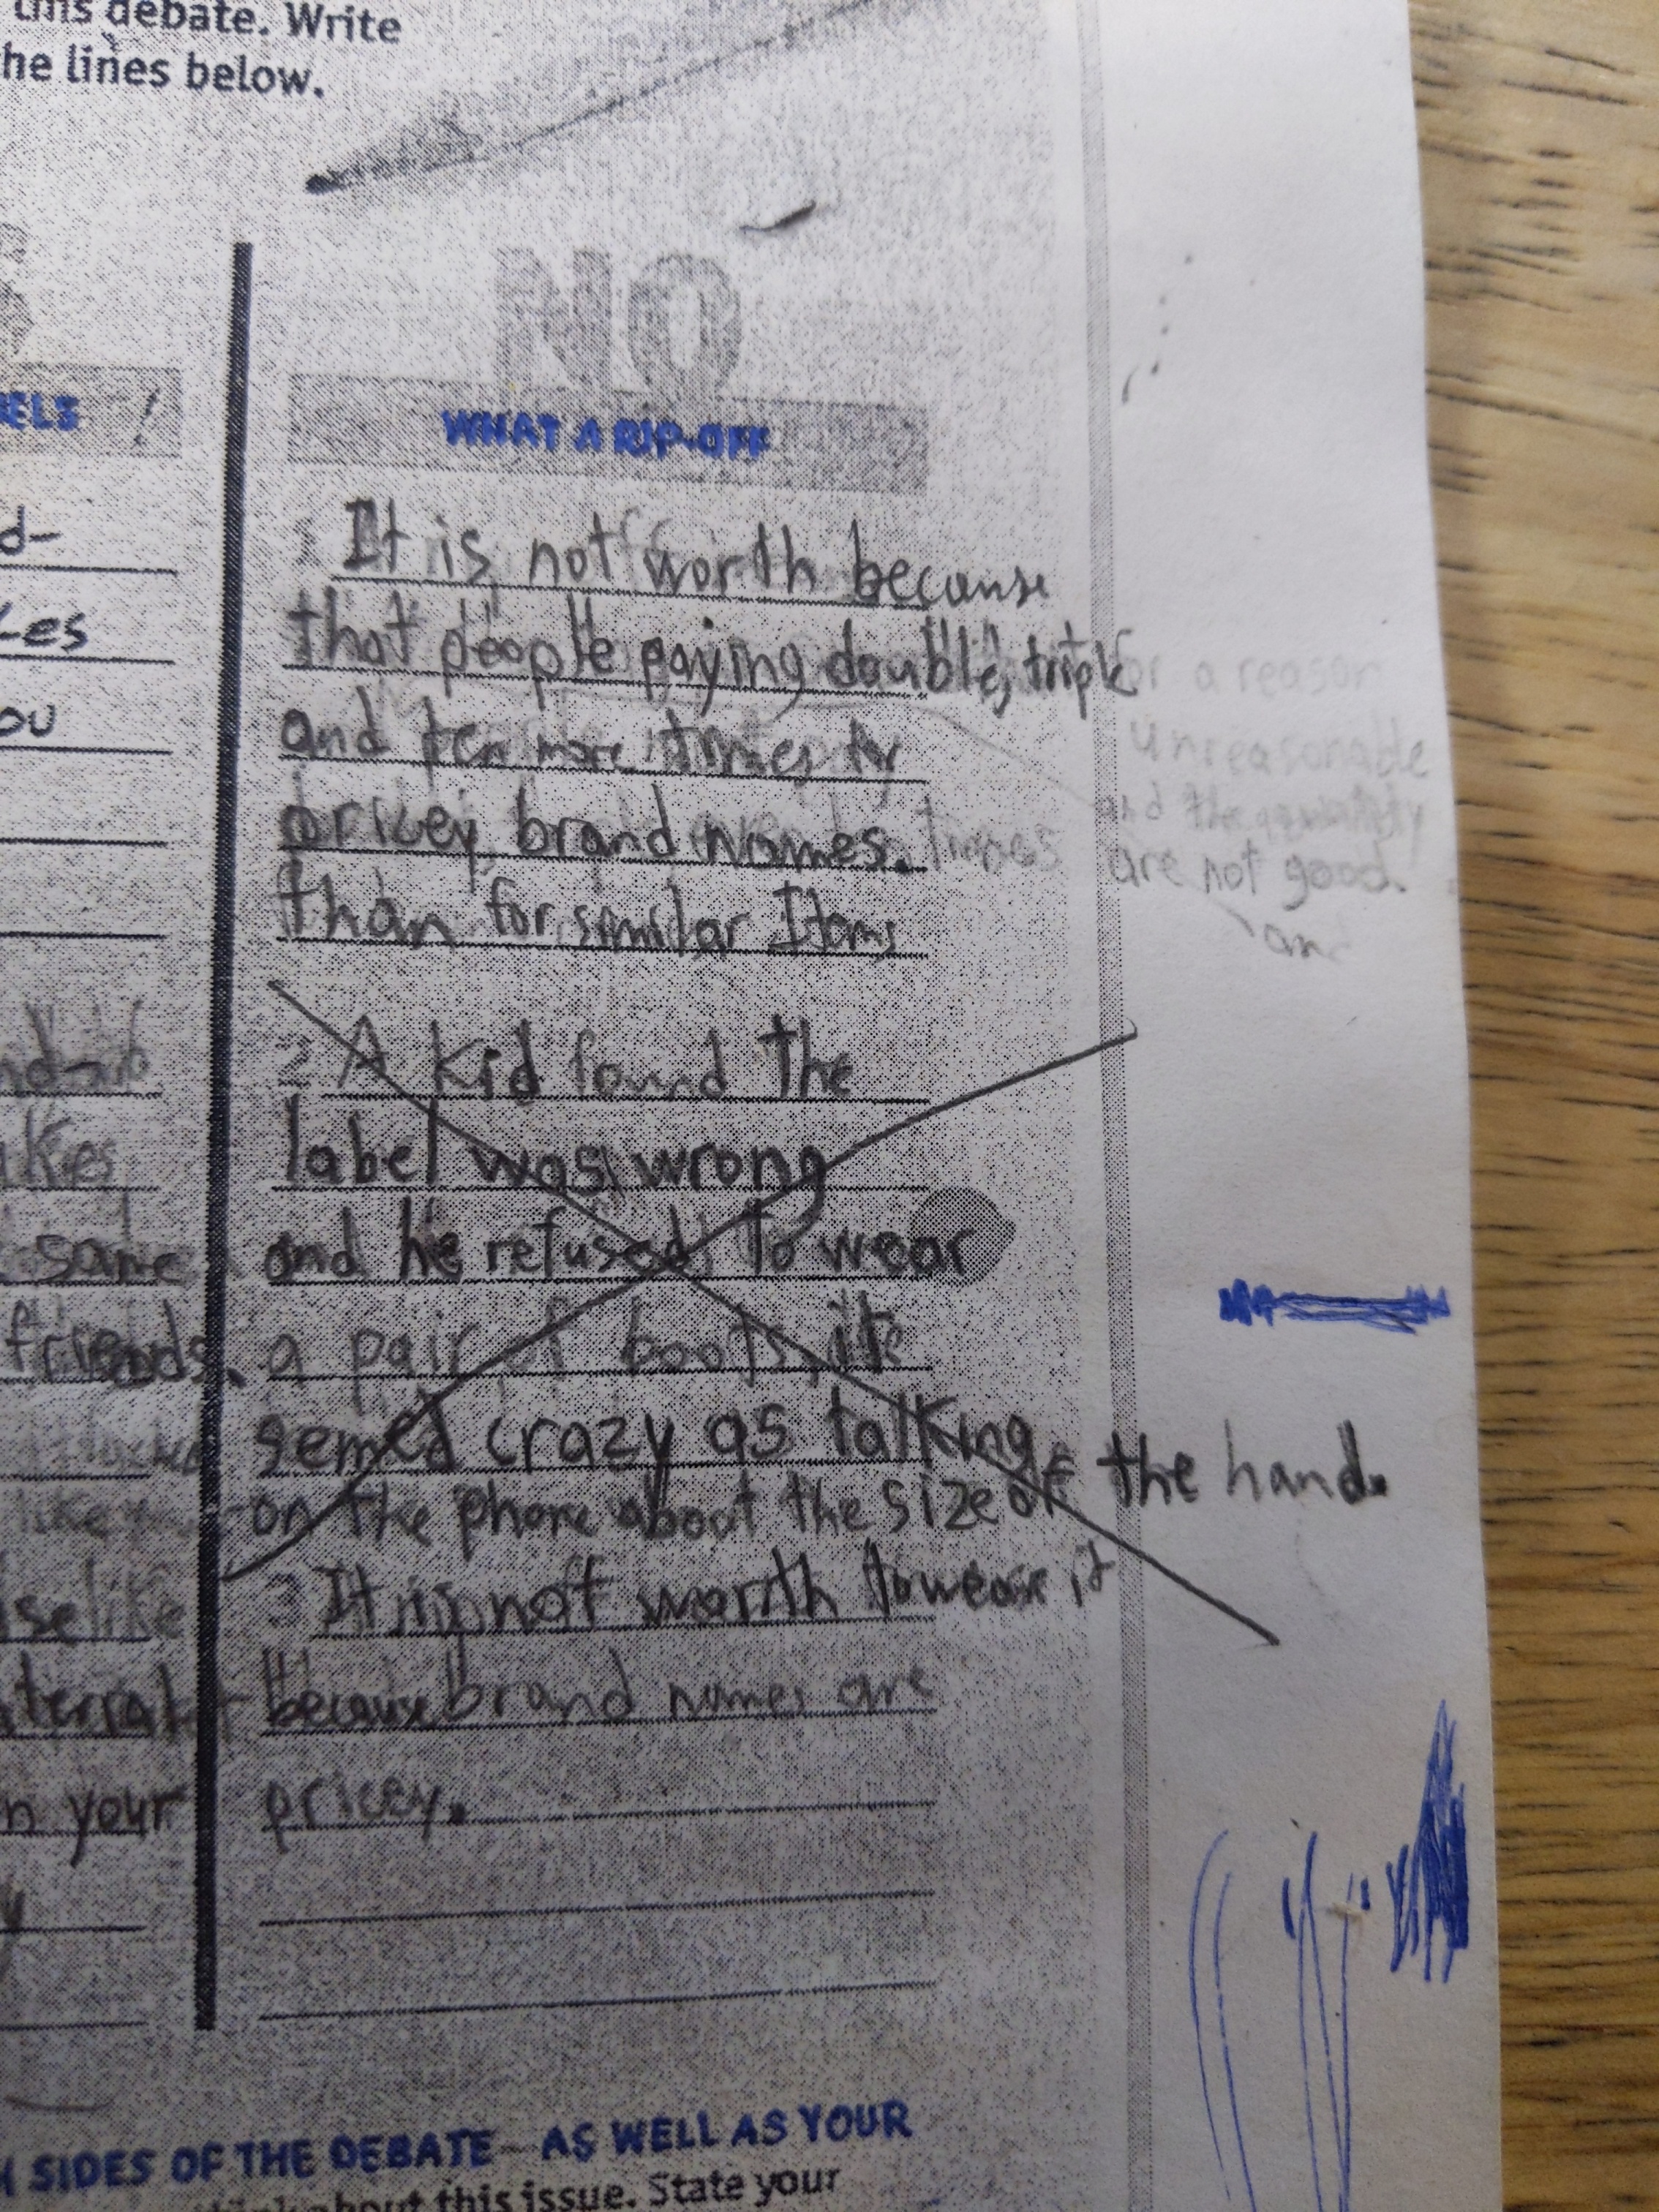 this debate. Write
the lines below.
NO
ELS !
WHAT A RIP-OFF
d-
kes
ou
1 It is not worth because
that people paying double, triple
and ten more times for
pricey brand names.
than for similar Items
or a reason
unreasonable
and the
are not good.
an
2 A kid found the
label was wrong
and he refused to wear
a pair of boots, its
semed crazy as talking
on the phone about the size of the hand.
3 It is not worth to wear it
because brand names are
pricey.
nd-
akes
same
friends.
like
use like
n your
y
H SIDES OF THE DEBATE AS WELL AS YOUR
think about this issue. State your